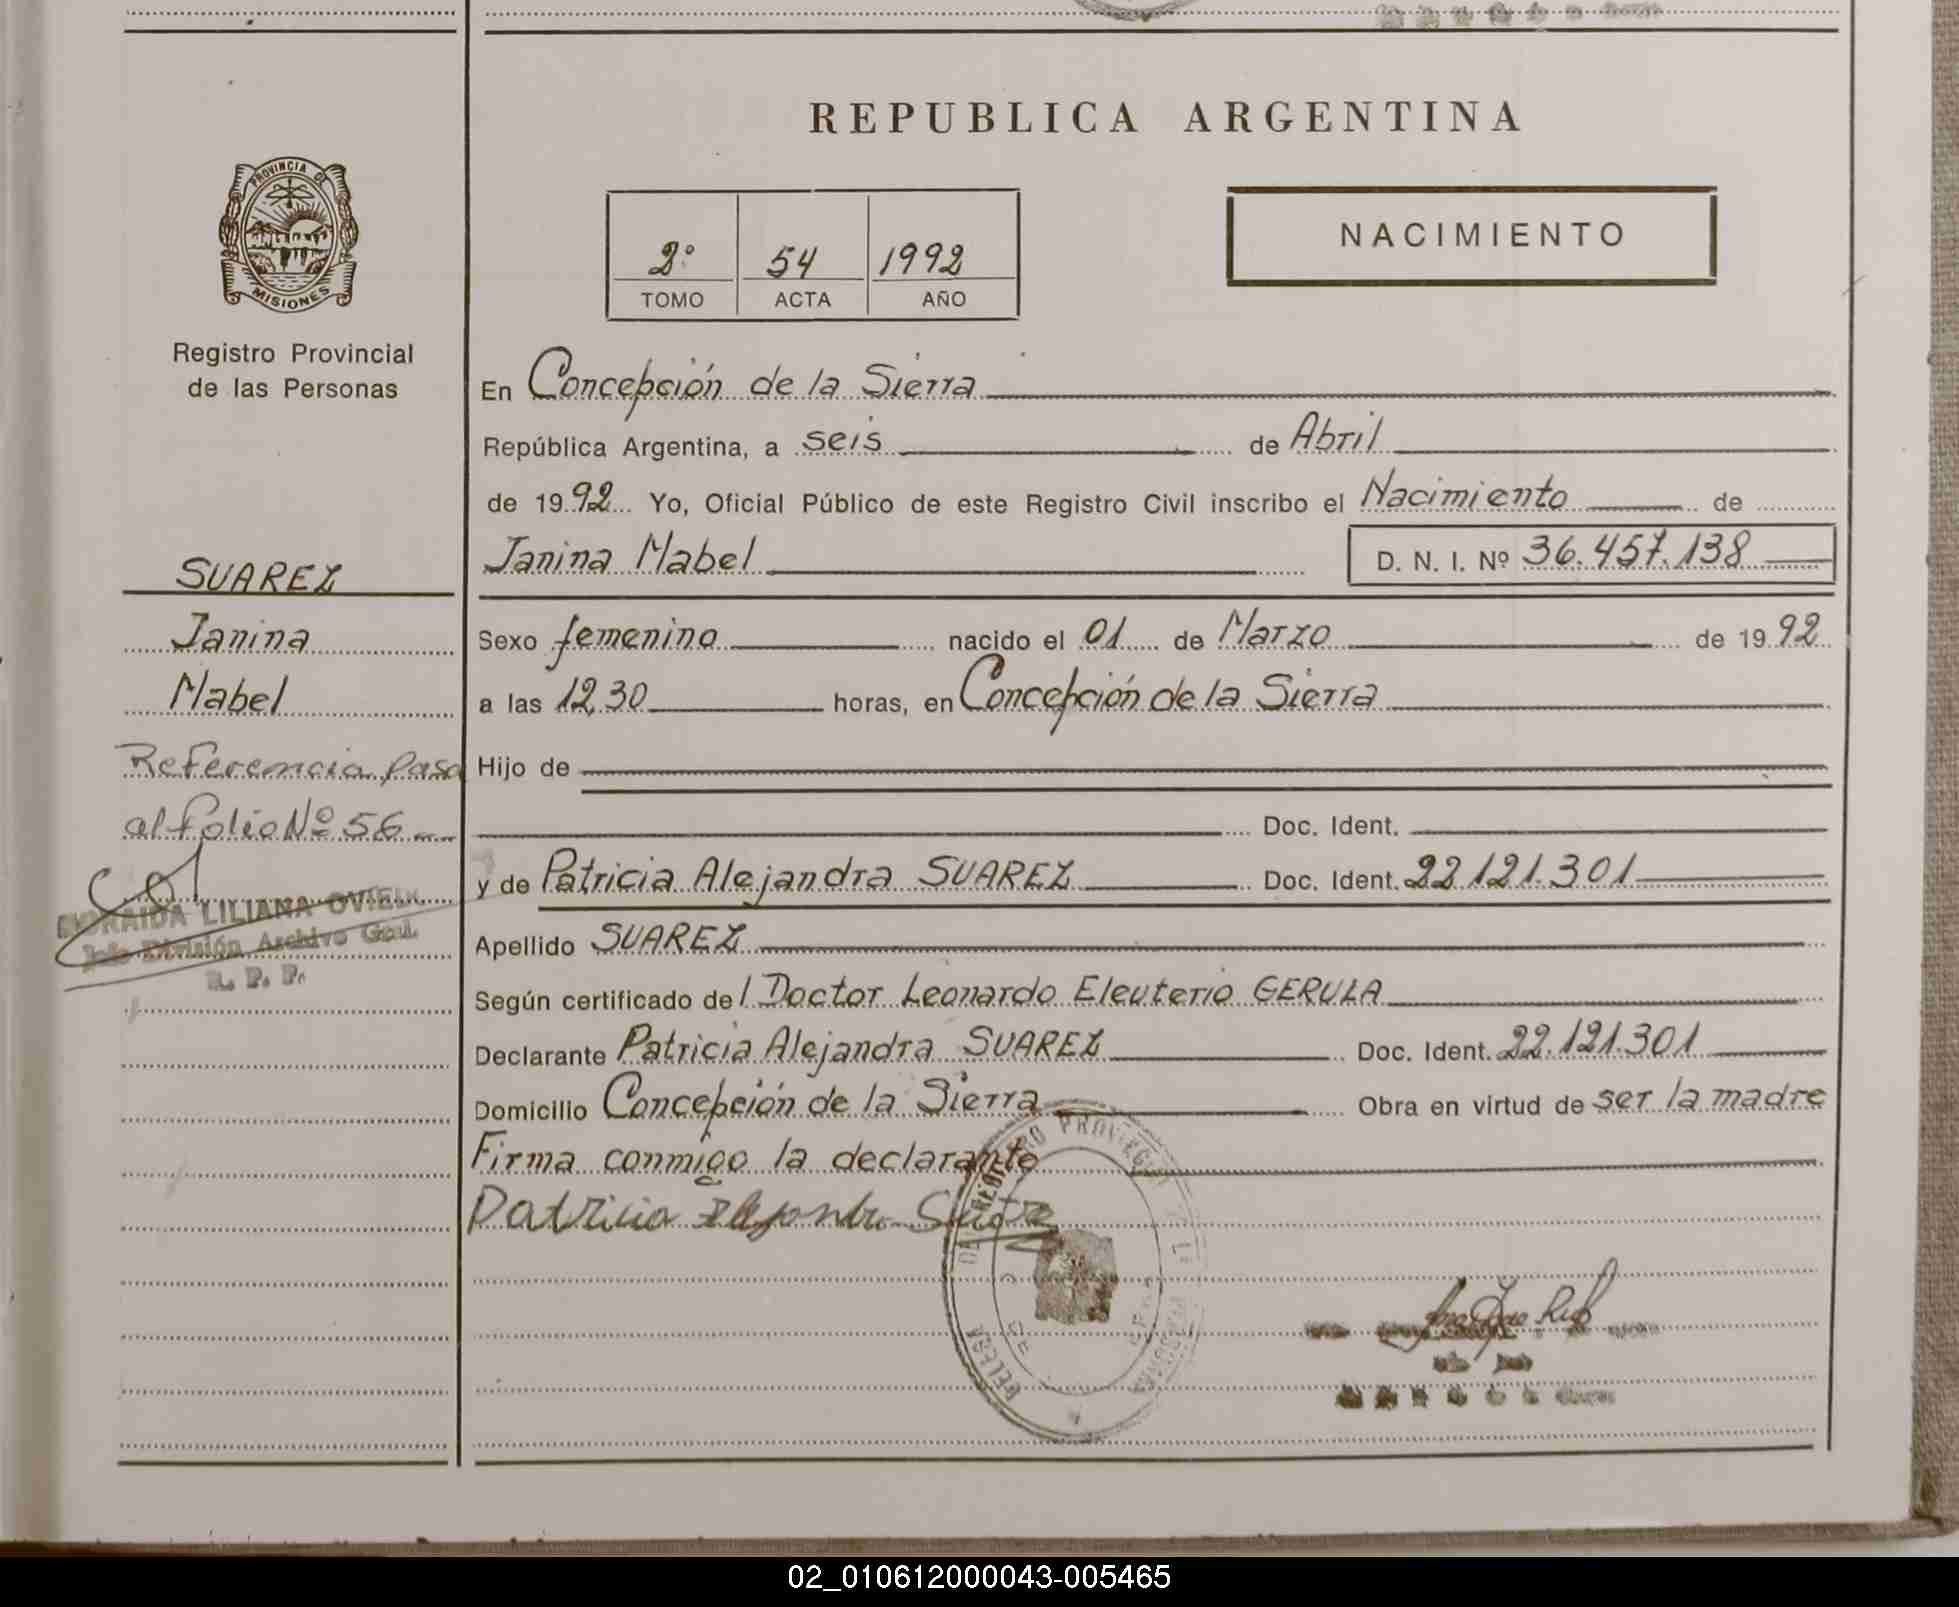 REPUBLICA ARGENTINA
PROVINCIA DE
MISIONES
Registro Provincial
de las Personas
NACIMIENTO
2º 54 1992
TOMO ACTA AÑO
En Concepción de la Sierra
República Argentina, a seis de Abril
de 1992 Yo, Oficial Público de este Registro Civil inscribo el Nacimiento de
Janina Mabel D. N. I. Nº 36.457.138
SUAREZ
Janina
Mabel
Referencia pasa
al folio Nº 56
LILIANA
Jefe División Archivo Gral.
R. P. P.
Sexo femenino nacido el 01 de Marzo de 1992
a las 12,30 horas, en Concepción de la Sierra
Hijo de
Doc. Ident.
y de Patricia Alejandra SUAREZ Doc. Ident. 22.121.301
Apellido SUAREZ
Según certificado del Doctor Leonardo Eleuterio GERULA
Declarante Patricia Alejandra SUAREZ Doc. Ident. 22.121.301
Domicilio Concepción de la Sierra Obra en virtud de ser la madre
Firma conmigo la declarante
Patricia Alejandra Suarez
02_010612000043-005465